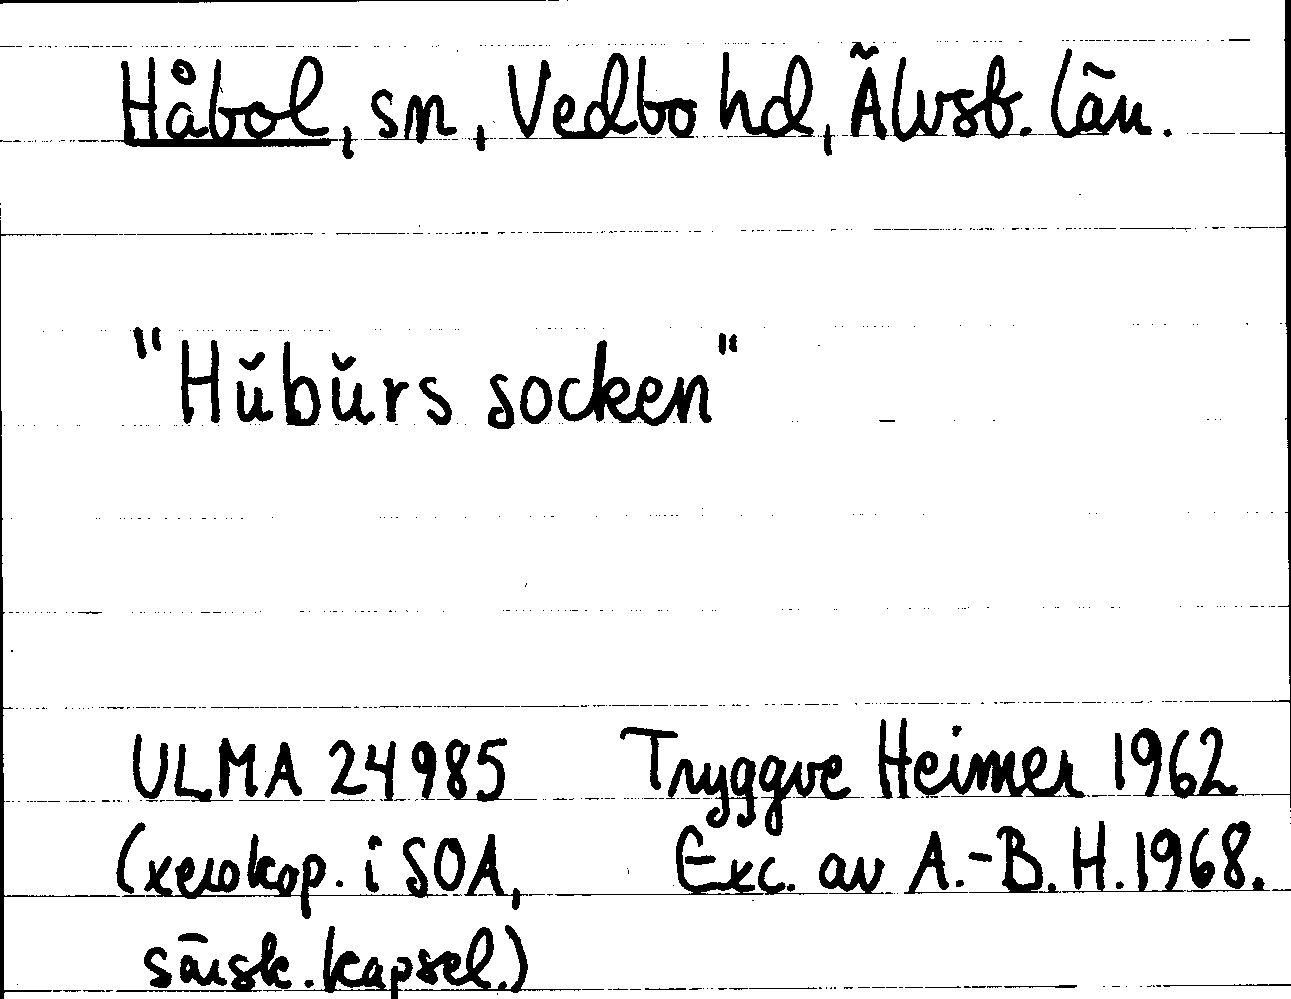 Håbol, sn, Vedbo hd, Älvsb. län.
"Hŭbŭrs socken"
ULMA 24985 Tryggve Heimer 1962
(xerokop. i SOA, Exc. av A.-B. H. 1968.
särsk. kapsel.)